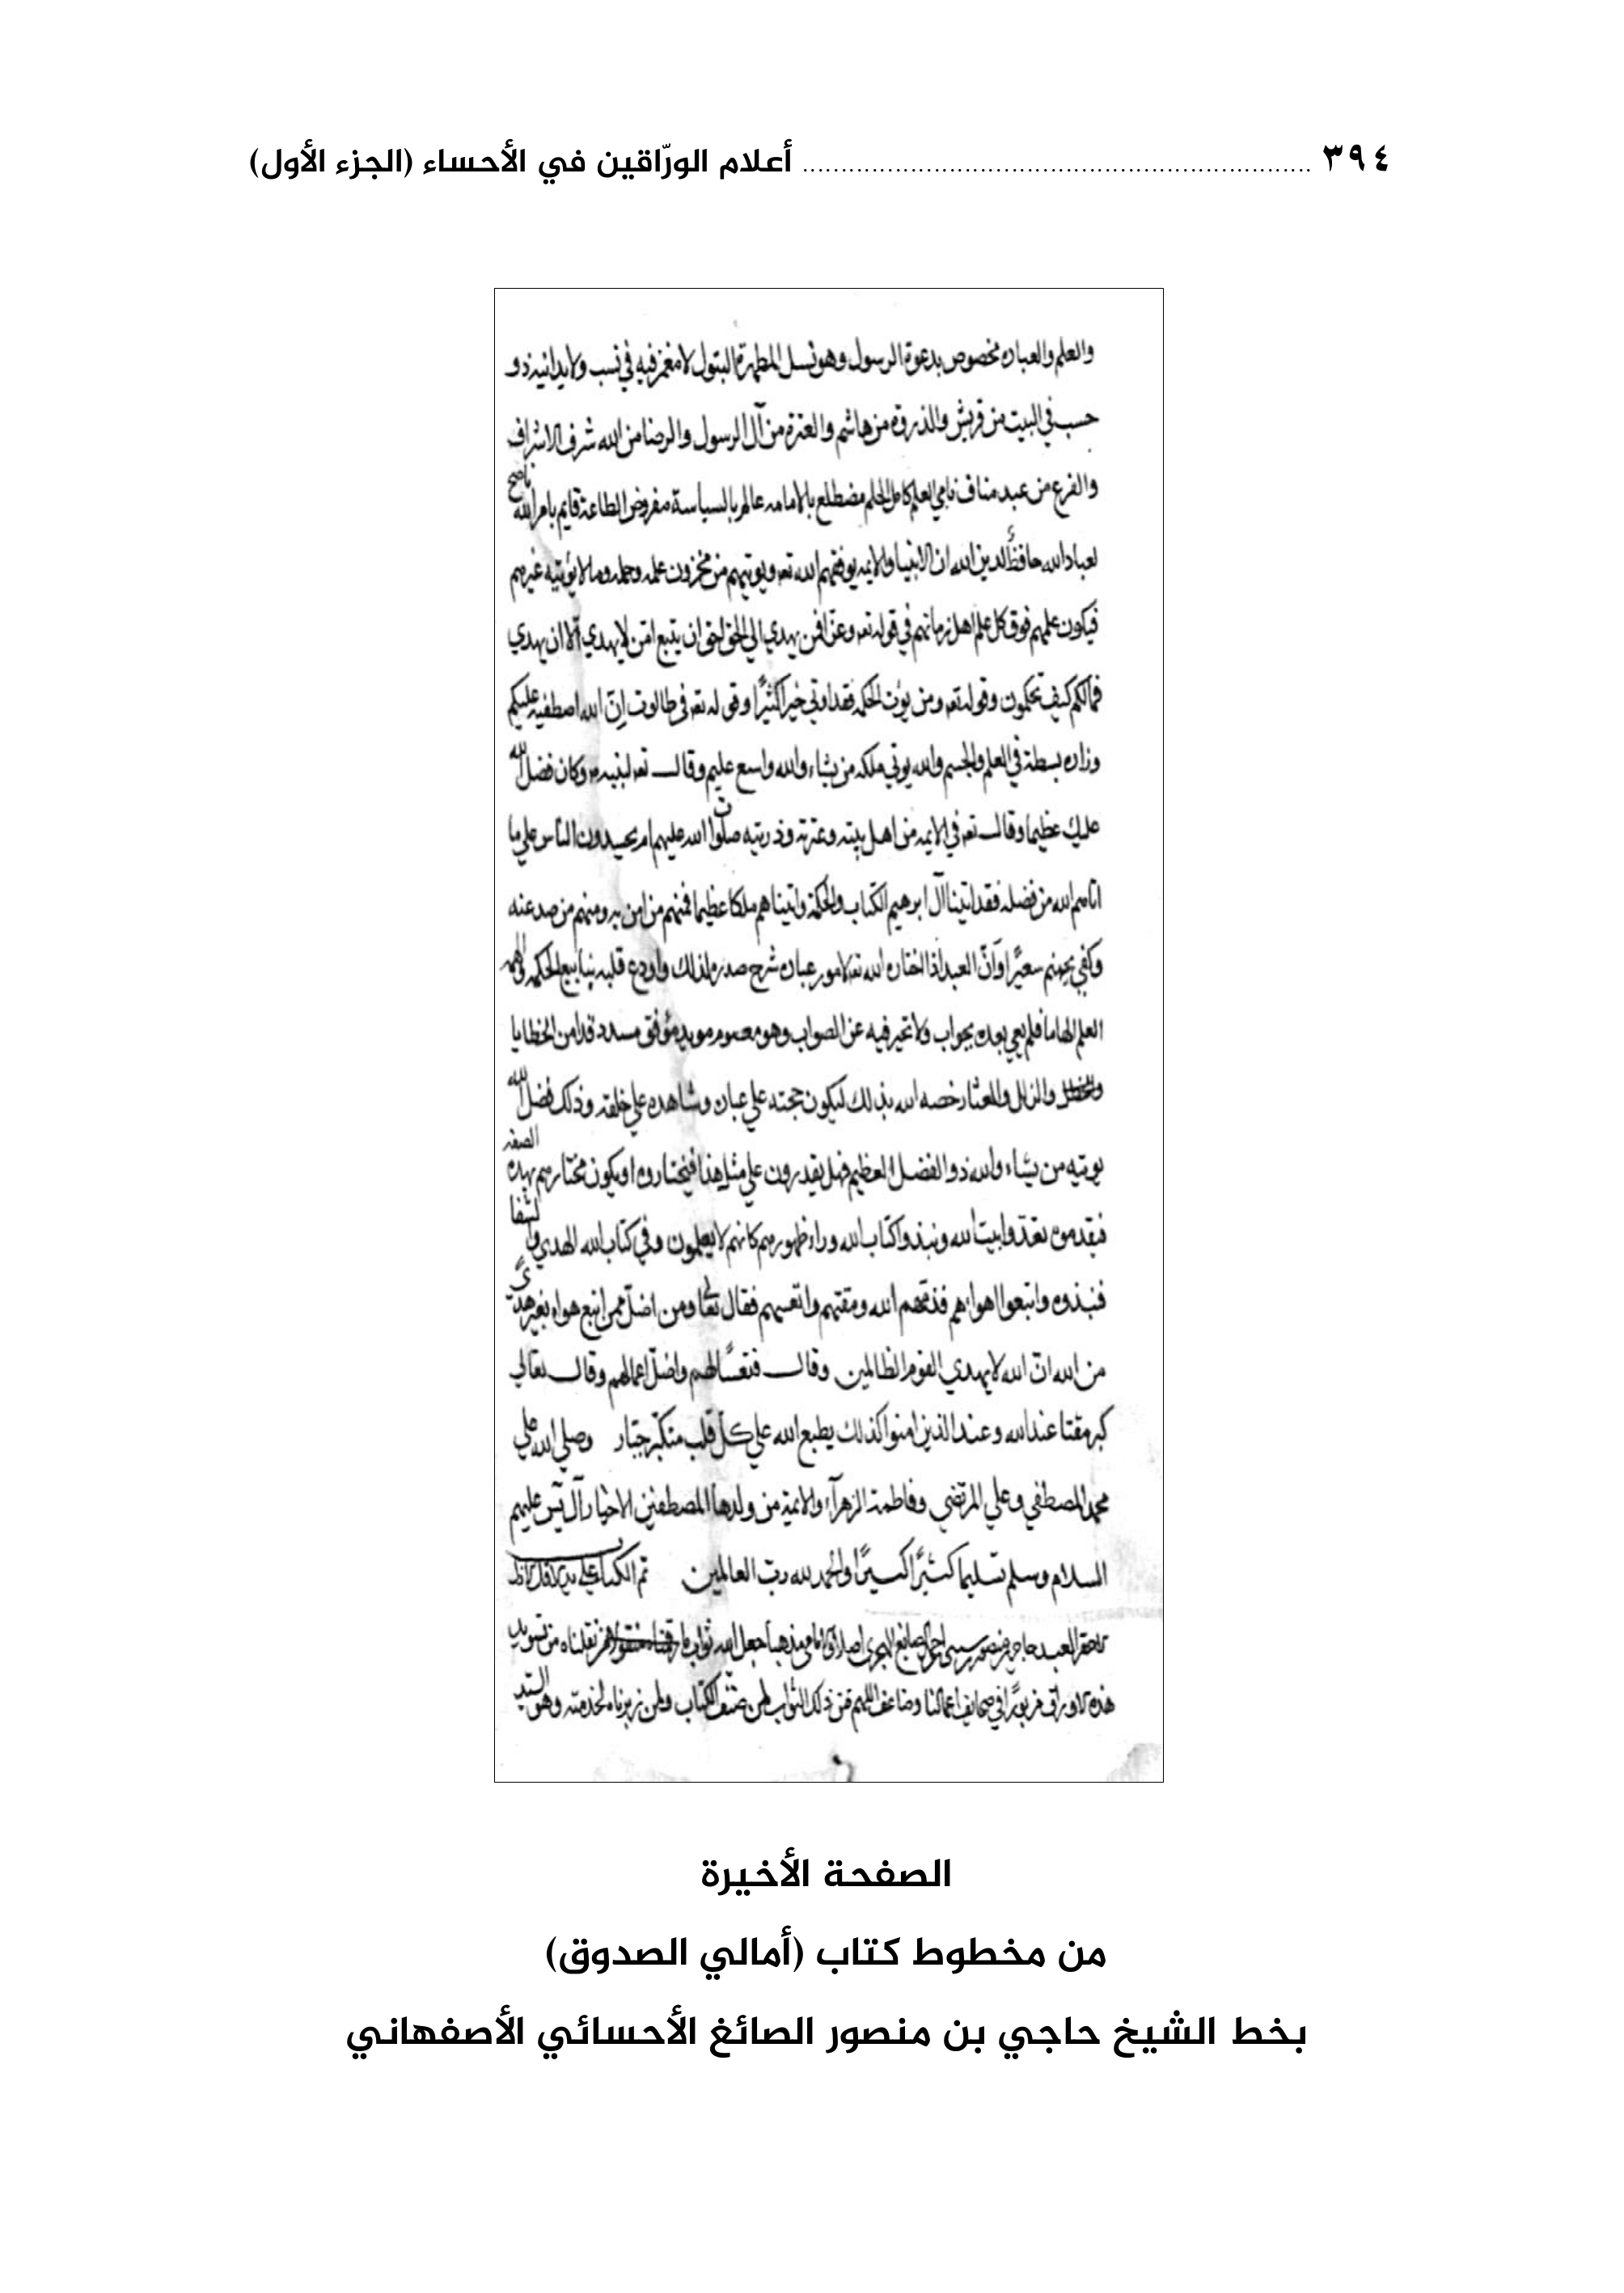 ٣٩٤ ........ أعلام الورّاقين في الأحساء (الجزء الأول)
والعلم والعباده مخصوص بدعوة الرسول وهو نسل المطهرة البتول لا مغمز فيه في نسب ولا يدانيه ذو
حسب في البيت من قريش والذروة من هاشم والعترة من آل الرسول والرضا من الله شرف الاشراف
والفرع من عبد مناف نامي العلم كامل الحلم مضطلع بالامامه عالم بالسياسة مفروض الطاعة قايم بامر الله ناصح
لعباد الله حافظ لدين الله ان الانبيا والايمه يوفقهم الله تعہ ويوتيهم من مخزون علمه وحلمه وما لا يؤتيه غيرهم
فيكون علمهم فوق كل علم اهل زمانهم في قوله تعہ وعز افمن يهدي الي الحق احق ان يتبع امن لا يهدي الا ان يهدي
فمالكم كيف تحكمون وقوله تعہ ومن يؤت الحكمه فقد اوتي خيرا كثيرًا وقوله تعہ في طالوت إنّ الله اصطفيه عليكم
وزاده بسطة في العلم والجسم والله يوتي ملكه من يشاء والله واسع عليم وقال تعہ لنبيه وكان فضل الله
عليك عظيما وقال تعہ في الايمه من اهل بيته وعترته وذريته صلوات الله عليهم ام يحسدون الناس علي ما
اتاهم الله من فضله فقد اتينا آل ابرهيم الكتاب والحكمة واتيناهم ملكا عظيما فمنهم من امن به ومنهم من صد عنه
وكفي بجهنم سعيرًا وانّ العبد اذا اختاره الله تعہ لامور عباده شرح صدره لذلك واودع قلبه ينابيع الحكمه والهمه
العلم الهاما فلم يعي بعده بجواب ولا تحير فيه عن الصواب وهو معصوم مويد مؤفق مسدد قد امن الخطايا
والزلل والعثار خصه الله بذلك ليكون حجته علي عباده وشاهده علي خلقه وذلك فضل الله
يوتيه من يشاء والله ذو الفضل العظيم فهل يقدرون علي مثل هذا فيختاروه او يكون مختارهم بهذه الصفه
فيقدموه تعدوا بيت الله ونبذوا كتاب الله وراء ظهورهم كانهم لا يعلمون وفي كتاب الله الهدي والشفا
فنبذوه واتبعوا اهواءهم فذمهم الله ومقتهم واتعسهم فقال تعالى ومن اضلّ ممن اتبع هواه بغير هدًى
من الله انّ الله لا يهدي القوم الظالمين وقال فتعسًا لهم واضلّ اعمالهم وقال تعالي
كبر مقتا عند الله وعند الذين امنوا كذلك يطبع الله علي كلّ قلب متكبّر جبّار وصلي الله علي
محمد المصطفي وعلي المرتضي وفاطمة الزهرآء والائمة من ولدها المصطفين الاخيار آل يس عليهم
السلام وسلم تسليما كثيرًا كثيرًا والحمد لله ربّ العالمين تمّ الكتاب علي يد
العبد حاجي بن منصور الصايغ جعل الله ثواب نقلناه من تسويد
هذه الاوراق مزبورًا في صحايف اعمالنا وضاعف اللهم من ذلك الثواب لمن صنّف الكتاب ولمن زبرناه لخدمته وهو السيّد
الصفحة الأخيرة
من مخطوط كتاب (أمالي الصدوق)
بخط الشيخ حاجي بن منصور الصائغ الأحسائي الأصفهاني